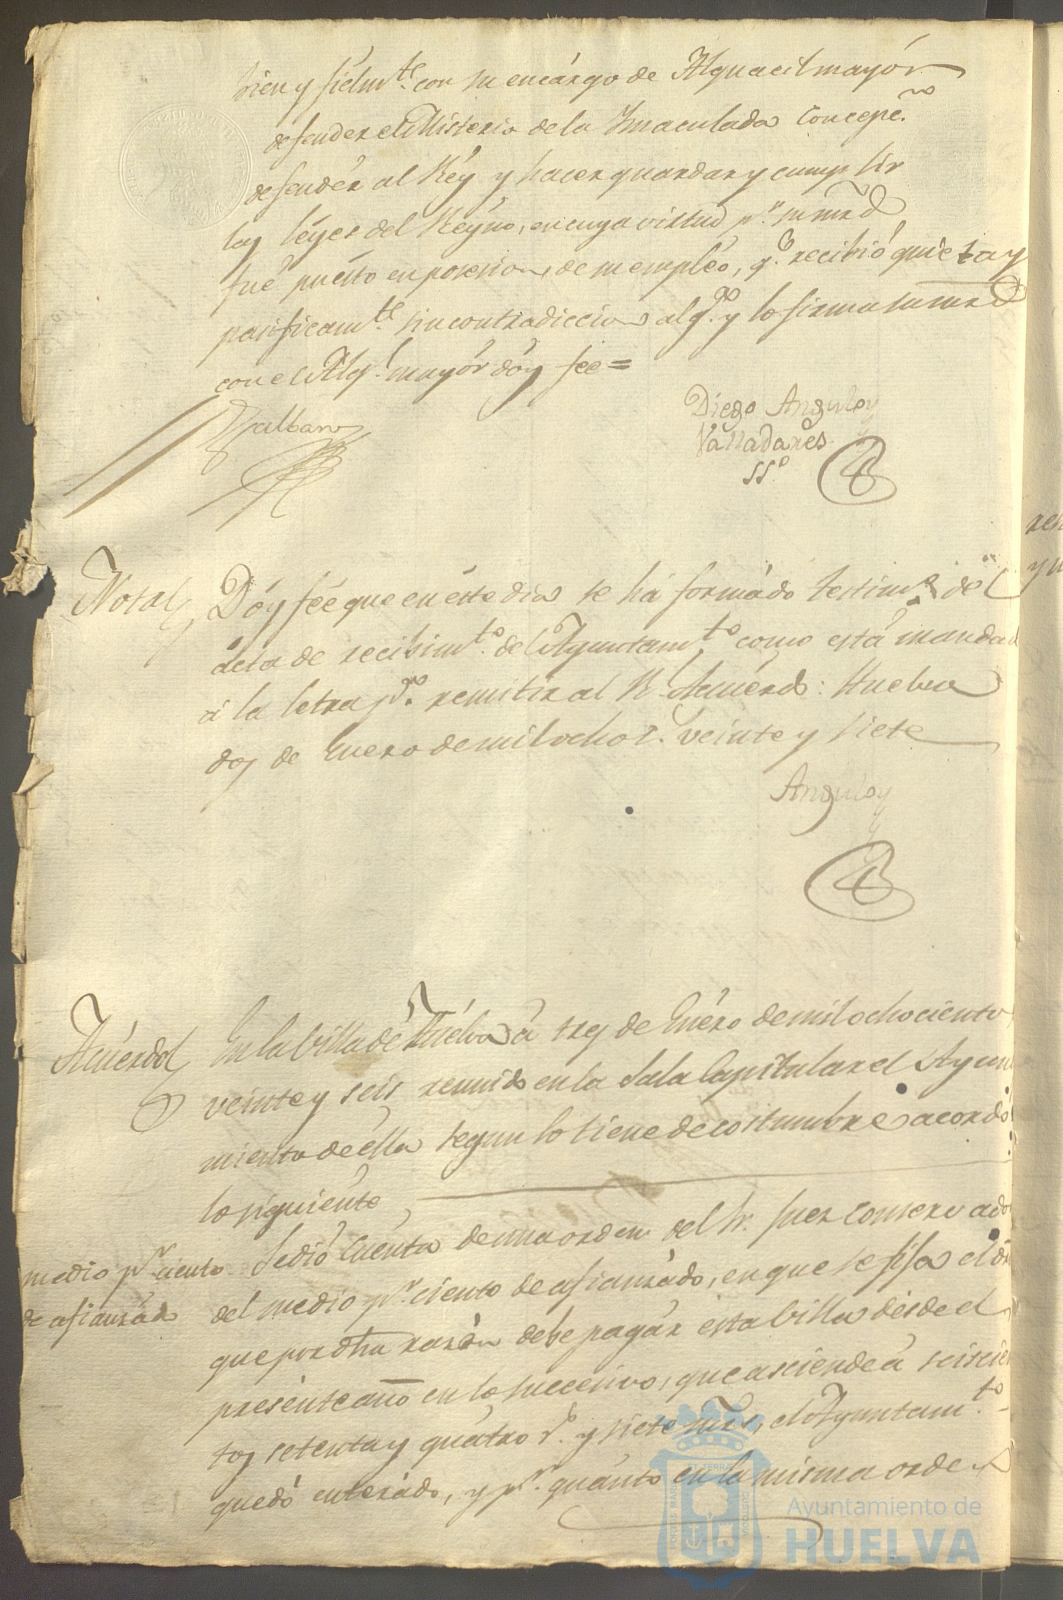 bien y fielmte. con su encárgo de Alguacil mayór
defender el Misterio de la Ymaculada Concepcn.
defendér al Réy y hacer guardar y cumplir
las léyes del Réyno, en cuya virtud pr. su mrd
fué puésto en posesion de su empléo, qe. recibió quieta y
pacificamte. sin contradiccion alga. y lo firma su mrd
con el Algl. mayór dóy fée=
Galbano
Diego Anguloy
Valladares
SSo.
Nota
Dóy fée que en éste dia se há formádo testimo. del
ácta de recibimto. del Ayuntamto. como está mandado
á la letra pa. remitir al R. Acuérdo: Huelva
dos de Enero de mil ochos. veinte y siete
Anguloy
Acuérdo
En la billa de Huélva á tres de Enéro de mil ochocientos
veinte y seis reunido en la Sala Capitular el Ayunta
miento de élla segun lo tiene de costumbre acordó
lo siguiénte
medio pr. ciento
de afianzádo
Se dió Cuénta de una orden del Sr. Juez Conservador
del medio pr. ciento de afianzádo, en que se fija el
que por dha razón debe pagár ésta billa désde el
presénte año en lo succesivo, que asciénde á seiscien
tos seténta y quátro rs. y siete mrs, el Ayuntamto.
quedó enterádo, y pr. quánto en la misma orden
Ayuntamiento de
HUELVA